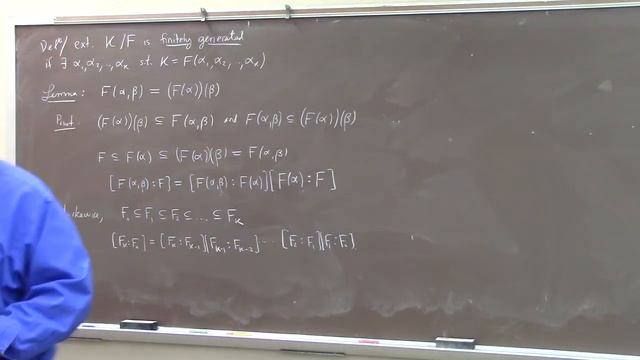 Defn/ ext. K/F is finitely generated
if ∃ α₁, α₂, .., αₖ s.t. K = F(α₁, α₂, .., αₖ)
Lemma: F(α,β) = (F(α))(β)
Proof. (F(α))(β) ⊆ F(α,β) and F(α,β) ⊆ (F(α))(β)
F ⊆ F(α) ⊆ (F(α))(β) = F(α,β)
[F(α,β) : F] = [F(α,β) : F(α)][F(α) : F]
F₀ ⊆ F₁ ⊆ F₂ ⊆ ... ⊆ Fₖ
[Fₖ : F₀] = [Fₖ : Fₖ₋₁][Fₖ₋₁ : Fₖ₋₂] ... [F₂ : F₁][F₁ : F₀]